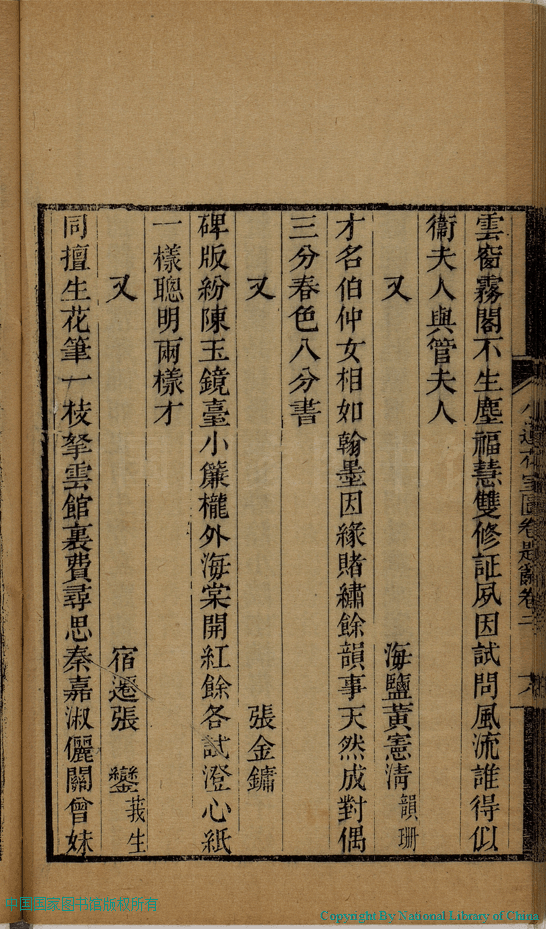 雲窗霧閣不生塵福慧雙修証夙因試問風流誰得似
衞夫人與管夫人
又 海鹽黃憲清韻珊
才名伯仲女相如翰墨因緣賭繡餘韻事天然成對偶
三分春色八分書
又 張金鏞
碑版紛陳玉鏡臺小簾櫳外海棠開紅餘各試澄心紙
一樣聰明兩樣才
又 宿遷張鑾莪生
同擅生花筆一枝拏雲館裏費尋思秦嘉淑儷關曾妹
中国国家图书馆版权所有
Copyright By National Library of China